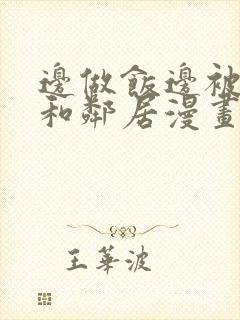 邊做飯邊被
和鄰居漫畫
王華波